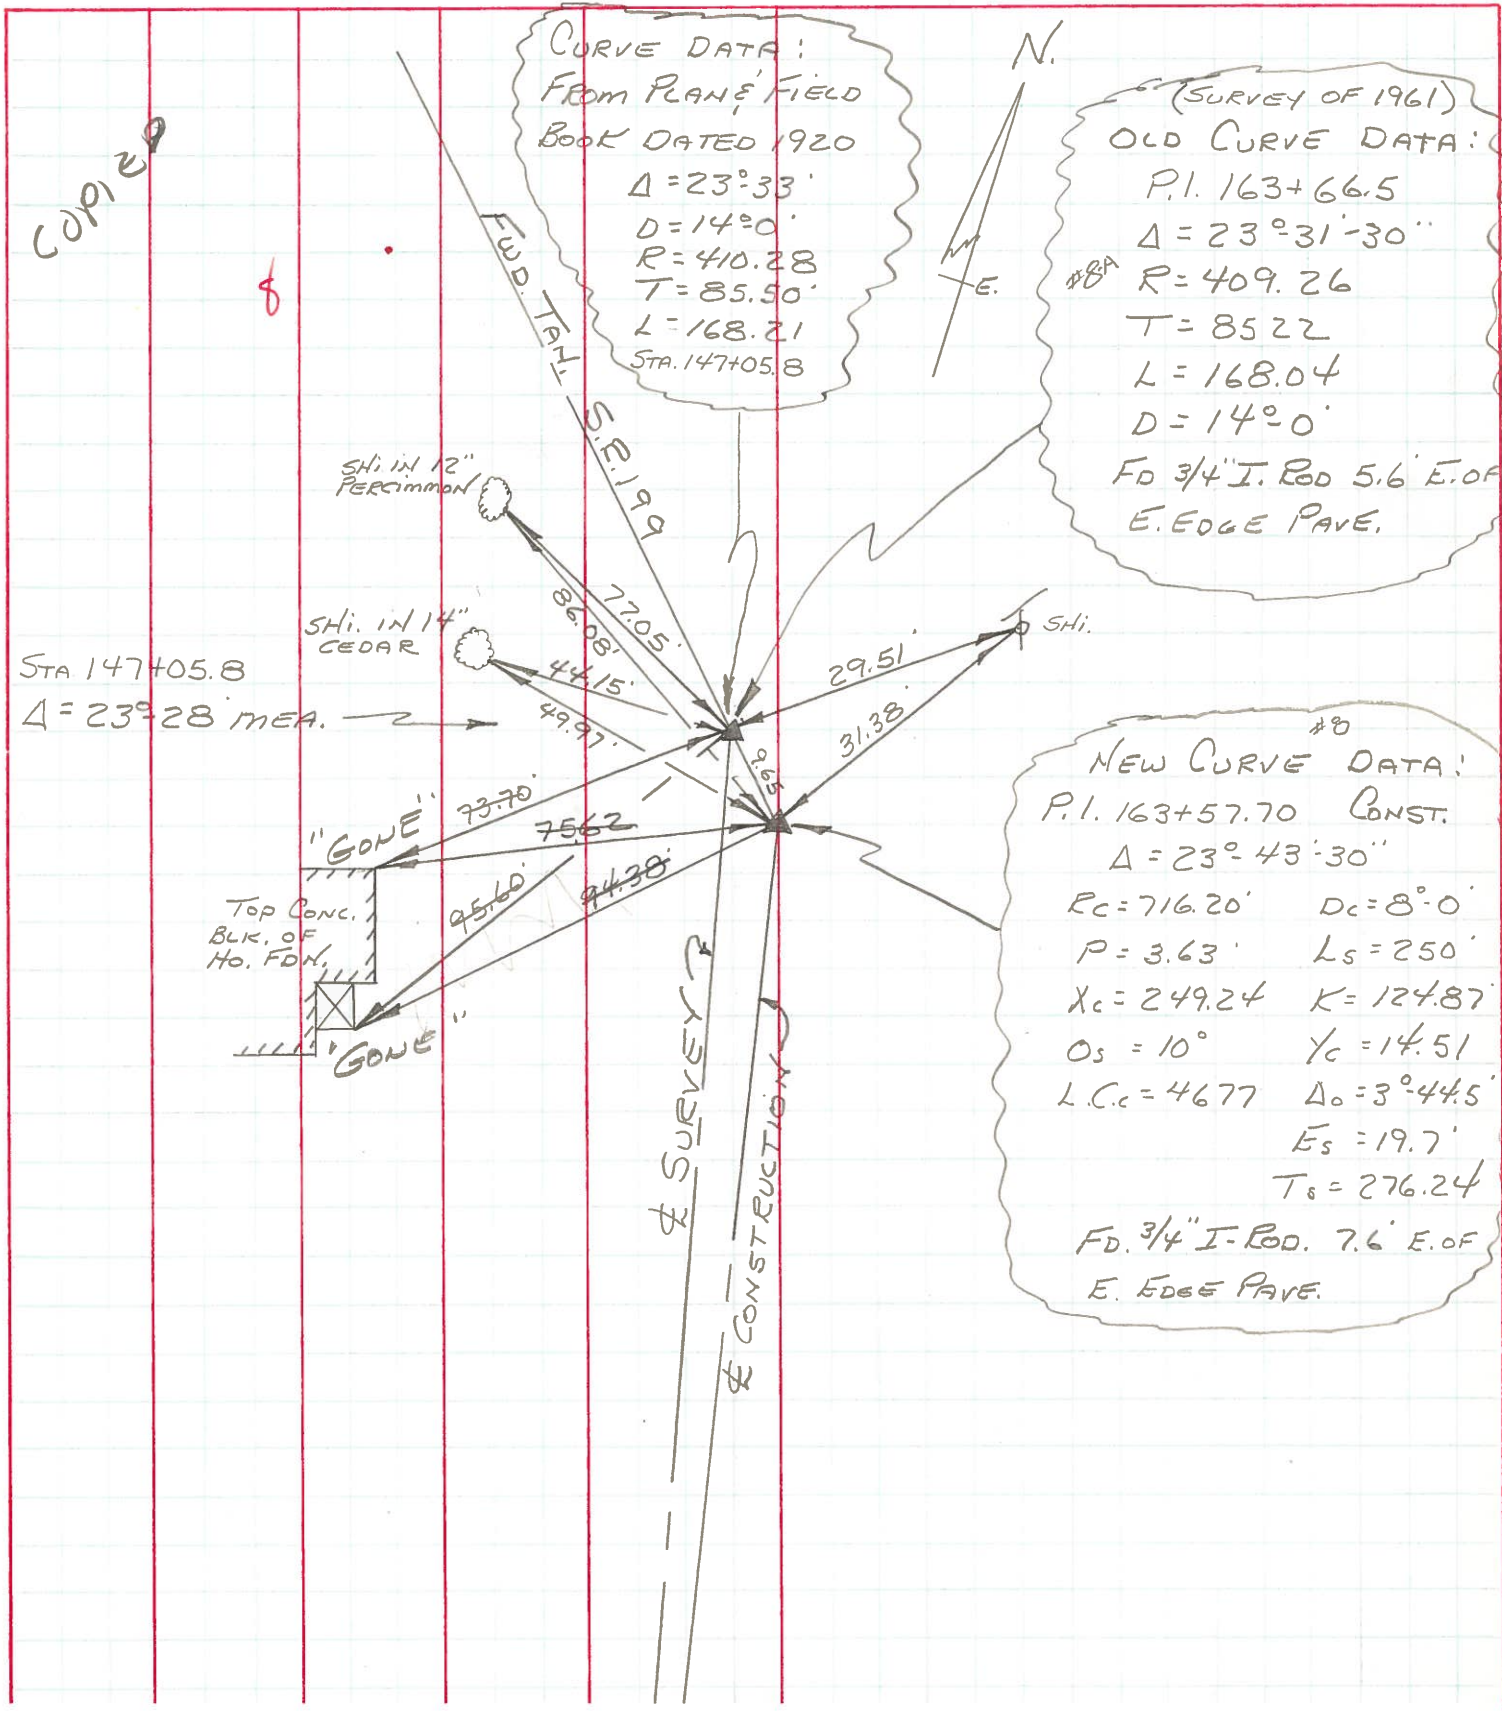 COPIED
8
CURVE DATA:
FROM PLAN & FIELD
BOOK DATED 1920
Δ = 23°-33'
D = 14°-0'
R = 410.28
T = 85.50'
L = 168.21
STA. 147+05.8
N.
E.
(SURVEY OF 1961)
OLD CURVE DATA:
P.I. 163+66.5
Δ = 23°-31'-30"
#8A R = 409.26
T = 85 22
L = 168.04
D = 14°-0'
FD 3/4" I. ROD 5.6' E. OF
E. EDGE PAVE.
FWD. TAN. S.R. 199
SHi IN 12"
PERCIMMON
77.05'
86.08'
SHi. IN 14"
CEDAR
44.15'
49.97'
STA 147+05.8
Δ = 23°-28' MEA.
29.51'
31.38'
SHi.
9.65
73.70'
75.62
95.60'
94.38'
"GONE"
TOP CONC.
BLK. OF
HO. FDN.
"GONE"
℄ SURVEY
℄ CONSTRUCTION
#8
NEW CURVE DATA:
P.I. 163+57.70 CONST.
Δ = 23°-43'-30"
Rc = 716.20' Dc = 8°-0'
P = 3.63' Ls = 250'
Xc = 249.24 K = 124.87'
Os = 10° Yc = 14.51
L.C.c = 46 77 Δo = 3°-44.5'
Es = 19.7'
Ts = 276.24
FD. 3/4" I-ROD. 7.6' E. OF
E. EDGE PAVE.